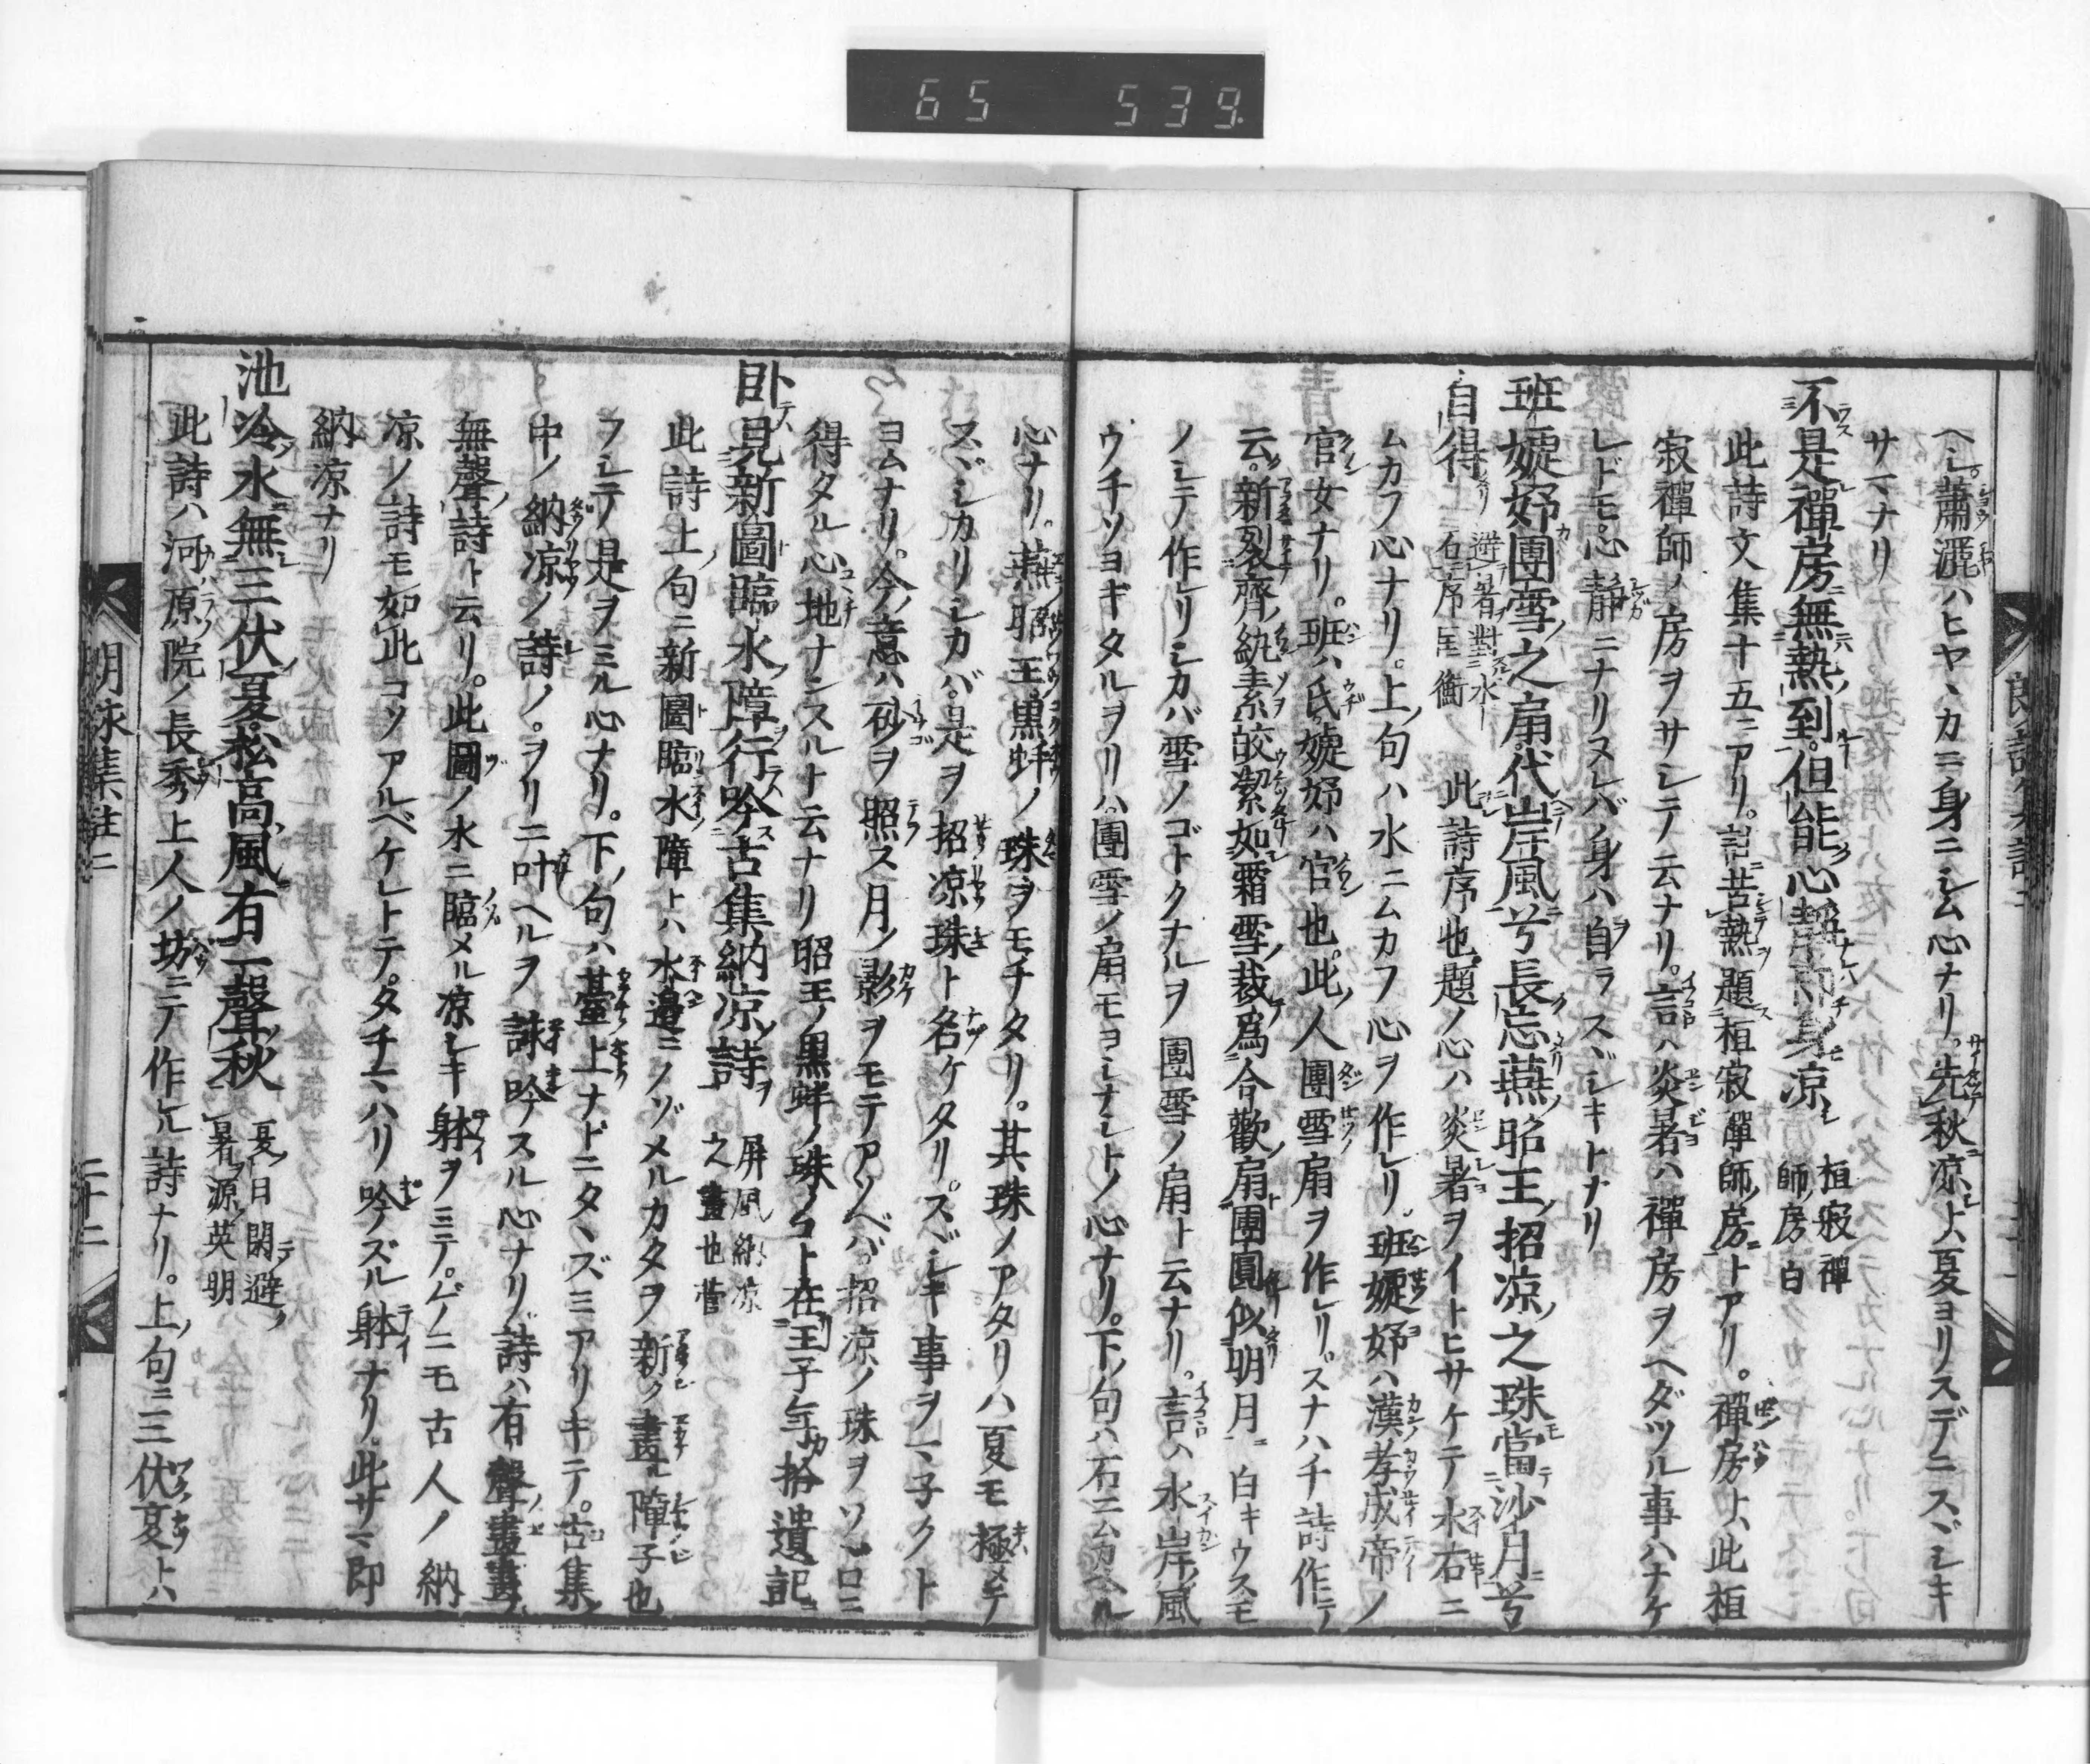 65 539.
ヘシ。蕭灑ハヒヤヽカニ身ニシム心ナリ。先秋凉トハ夏ヨリスデニスヾシキ
サマナリ
不是禪房無熱到。但能心靜即身凉 桓寂禪師房白
此詩文集十五ニアリ。苦熱題桓寂禪師房トアリ。禪房トハ此桓
寂禪師ノ房ヲサシテ云ナリ。言ハ炎暑ハ禪房ヲヘダツル事ハナケ
レドモ。心靜ニナリヌレバ身ハ自ラスヾシキトナリ
班婕妤團雪之扇。代岸風兮長忘。燕昭王招凉之珠。當沙月兮
自得 避暑對水石序 匡衡 此詩序也。題ノ心ハ炎暑ヲイトヒサケテ水石ニ
ムカフ心ナリ。上句ハ水ニムカフ心ヲ作レリ。班婕妤ハ漢孝成帝ノ
官女ナリ。班ハ氏婕妤ハ官也。此人團雪扇ヲ作レリ。スナハチ詩作テ
云。新裂齊紈素。皎潔如霜雪。裁爲合歡扇。團圓似明月。白キウスモ
ノシテ作レリシカバ雪ノゴトクナルヲ團雪ノ扇ト云ナリ。言ハ水岸風
ウチソヨギタルヲリハ團雪ノ扇モヨシナシトノ心ナリ。下句ハ石ニムカヘル
心ナリ。燕昭王黒蚌ノ珠ヲモチタリ。其珠ノアタリハ夏モ極メテ
スヾシカリシカバ。是ヲ招凉珠ト名ケタリ。スヾシキ事ヲマ子クト
ヨムナリ。今意ハ砂ヲ照ス月ノ影ヲモテアソベバ。招凉ノ珠ヲソヾロニ
得タル心地ナンスルト云ナリ昭王ノ黒蚌ノ珠ノコト在王子年拾遺記
臥見新圖臨水障。行吟古集納凉詩 屏風納凉之畫也 菅
此詩上句ニ新圖臨水障トハ水邊ニノゾメルカタヲ新ク畫ル障子也
フシテ是ヲミル心ナリ。下句ハ臺上ナドニタヽズミアリキテ。古集
中ノ納凉ノ詩ノ。ヲリニ叶ヘルヲ詠吟スル心ナリ。詩ハ有聲畫。畫ハ
無聲詩ト云リ。此圖ノ水ニ臨メル凉シキ躰ヲミテ。ゲニモ古人ノ納
凉ノ詩モ如此コソアルベケレトテ。タチマハリ吟ズル躰ナリ。此サマ即
納凉ナリ
池冷水無三伏夏。松高風有一聲秋 夏日閑避暑 源英明
此詩ハ河原院ノ長秀上人ノ坊ニテ作レル詩ナリ。上句ニ三伏夏トハ
朗詠集註二 二十二